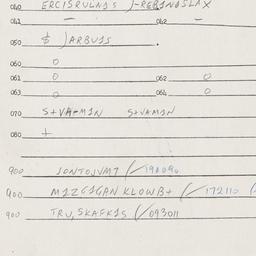 040 ERCISRULNDS J-REBINDSLAX
041 — 042 —
050 $ JARBUIS .
060 0
061 0 062 0
063 0 064 0
070 S+VA-MIN S+VAMIN
080 +
900 JONTOJVMT (/190090
900 MIZGIGAN KLOWB+ (/172110
900 TRU, SKAFKIS (/093011